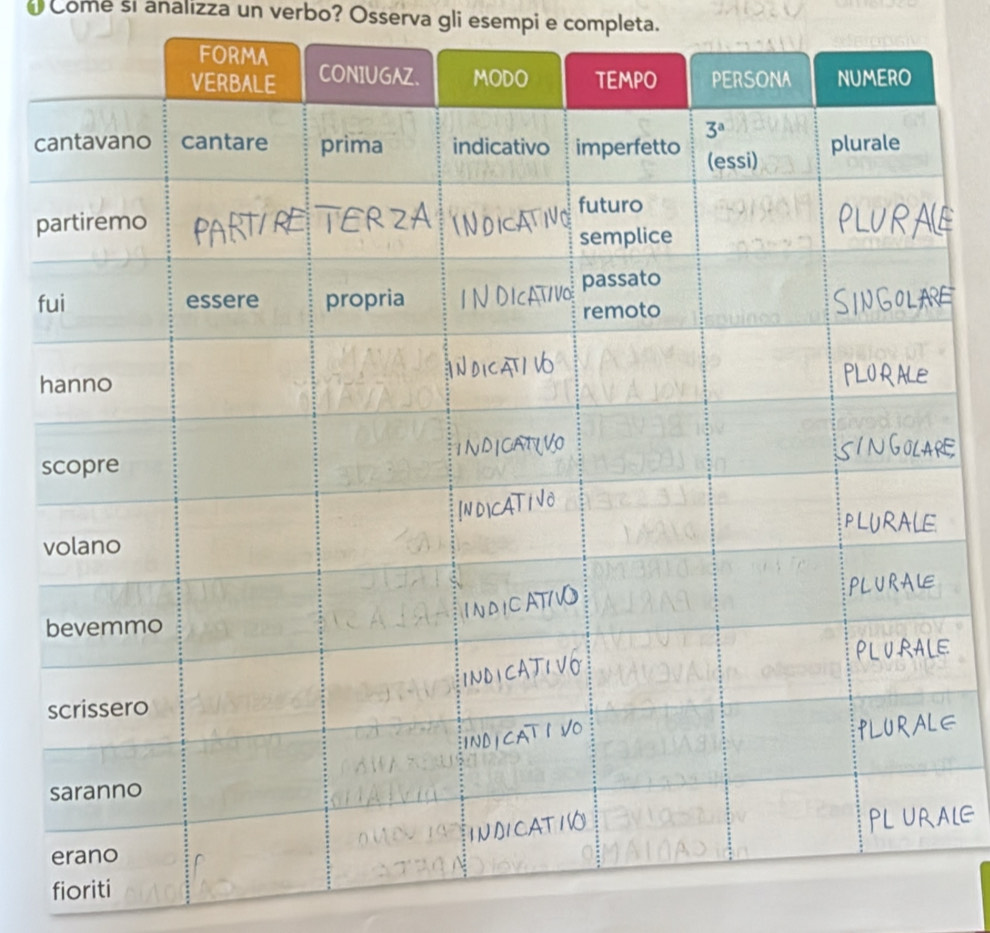 1 Come si analizza un verbo? Osserva gli esempi e completa.
FORMA VERBALE CONIUGAZ. MODO TEMPO PERSONA NUMERO
cantavano cantare prima indicativo imperfetto 3ª (essi) plurale
partiremo PARTIRE TERZA INDICATIVO futuro semplice PLURALE
fui essere propria INDICATIVO passato remoto SINGOLARE
hanno INDICATIVO PLURALE
scopre INDICATIVO SINGOLARE
volano INDICATIVO PLURALE
bevemmo INDICATIVO PLURALE
scrissero INDICATIVO PLURALE
saranno INDICATIVO PLURALE
erano fioriti P INDICATIVO PLURALE